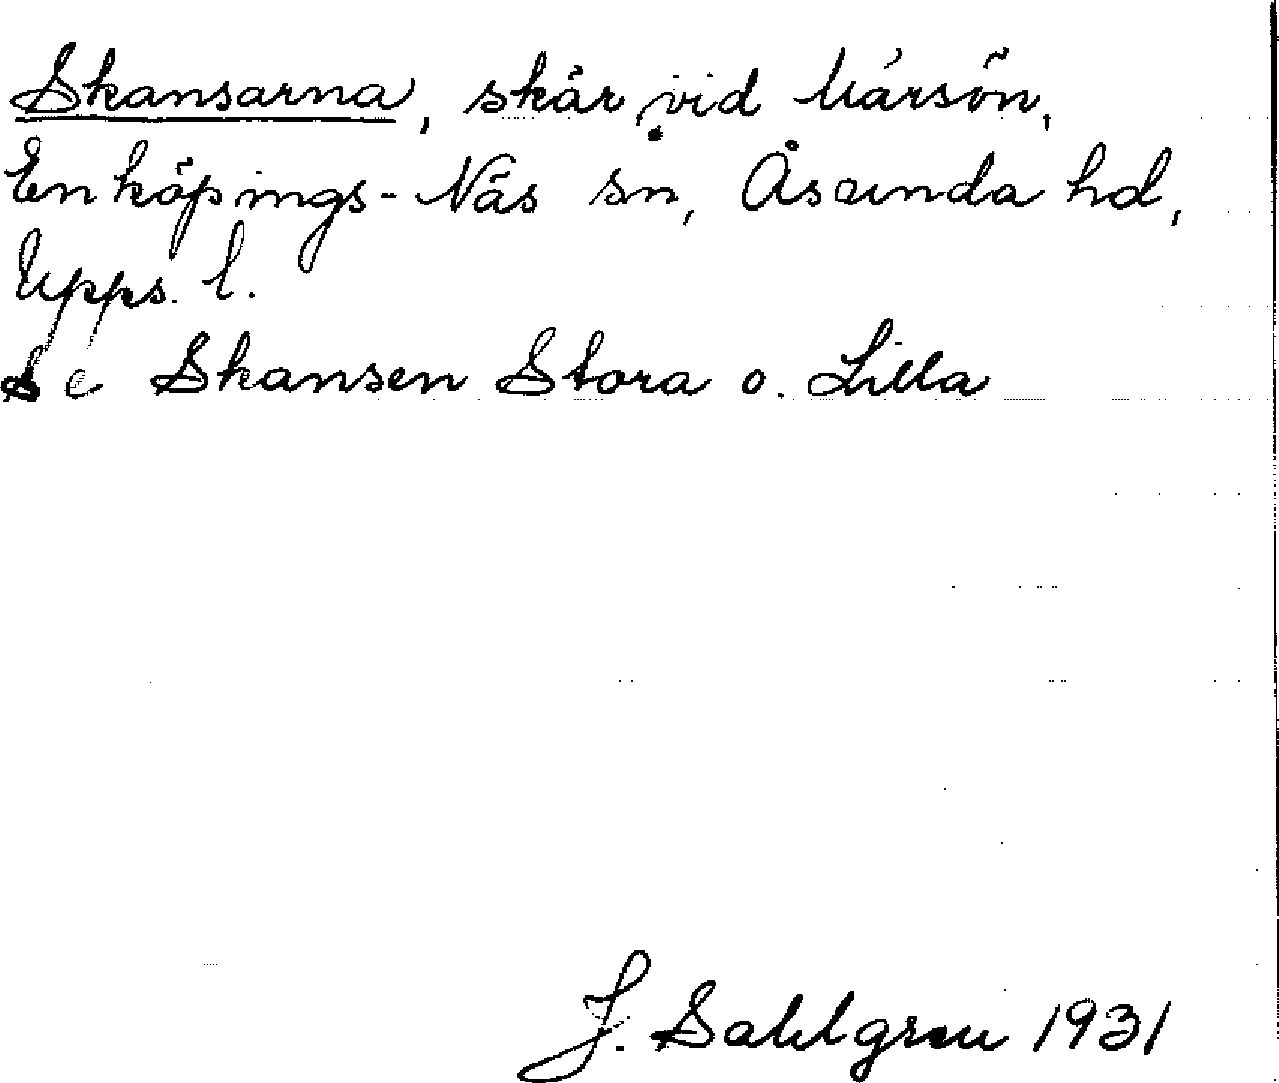 Skansarna, skär vid Kärsön,
Enköpings-Näs sn, Åsunda hd,
Upps. l.
Se Skansen Stora o. Lilla
J. Sahlgren 1931